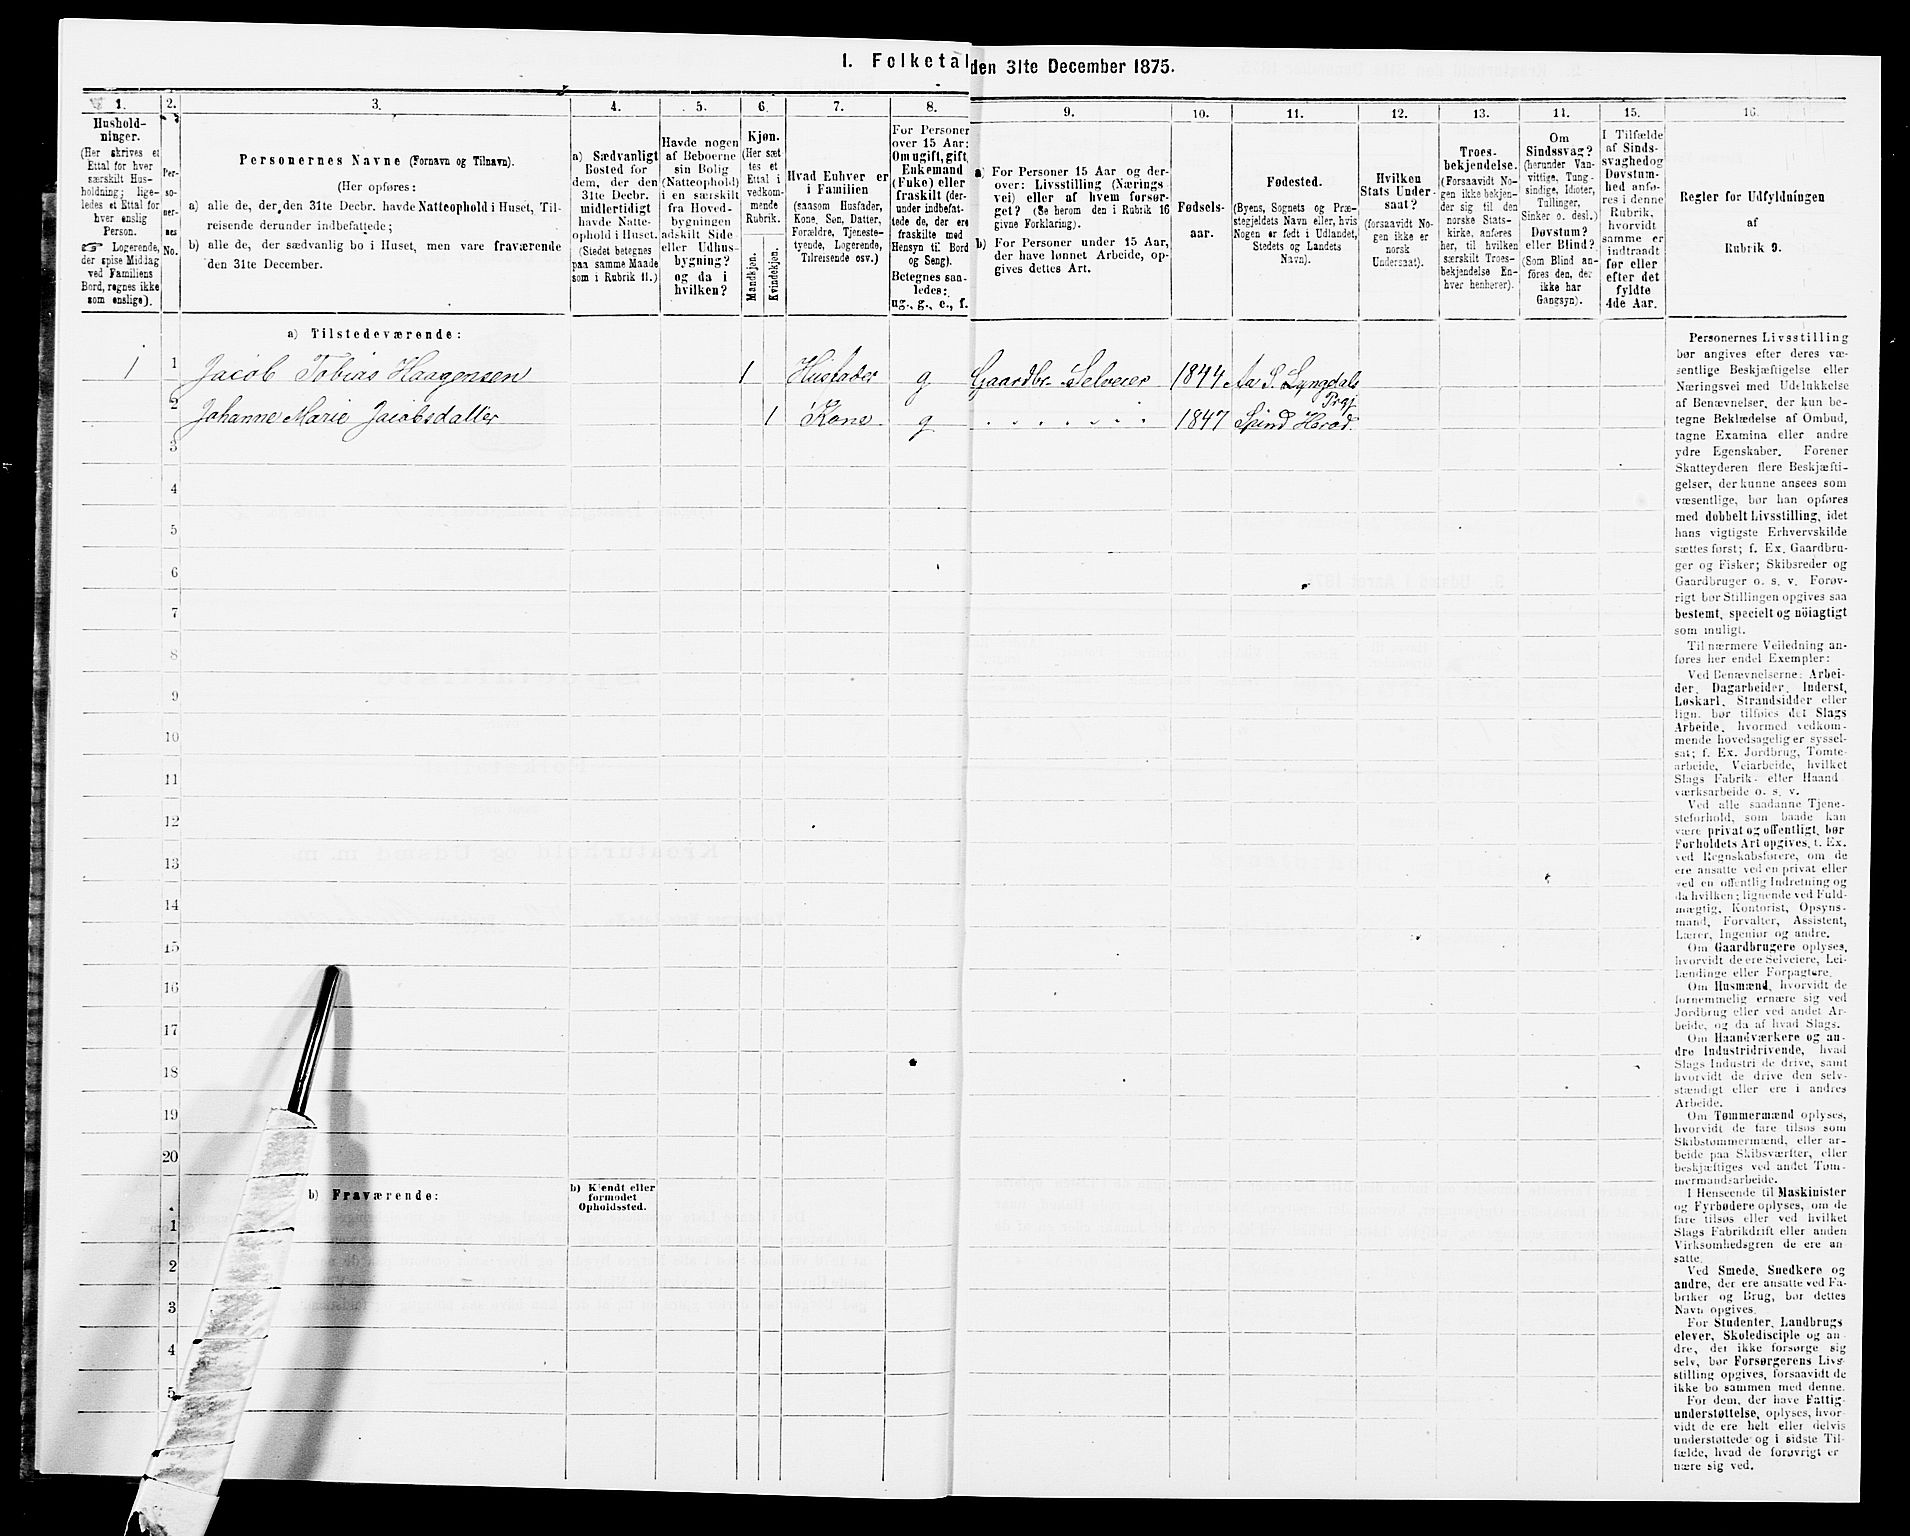 1. Folketal den 31te December 1875.
1.
2.
3.
4.
5.
6.
7.
8.
9.
10.
11.
12.
13.
14.
15.
16.
Hushold-
ninger.
(Her skrives et
Ettal for hver
særskilt Hus-
holdning; lige-
ledes et Ettal for
hver enslig
Person.
☞ Logerende,
der spise Middag
ved Familiens
Bord, regnes ikke
som enslige).
Per-
so-
ner-
nes
No.
Personernes Navne (Fornavn og Tilnavn).
(Her opføres:
a) alle de, der den 31te Decbr. havde Natteophold i Huset, Til-
reisende derunder indbefattede;
b) alle de, der sædvanlig bo i Huset, men vare fraværende
den 31te December.
a) Sædvanligt
Bosted for
dem, der den
31te Decbr.
midlertidigt
havde Natte-
ophold i Huset.
(Stedet betegnes
paa samme Maade
som i Rubrik 11.)
Havde nogen
af Beboerne
sin Bolig
(Natteophold)
i en særskilt
fra Hoved-
bygningen
adskilt Side
eller Udhus-
bygning?
og da i
hvilken?
Kjøn.
(Her sæt
tes et
Ettal i
vedkom-
mende
Rubrik.
Mandkjøn.
Kvindekjøn.
Hvad Enhver er
i Familien
(saasom Husfader,
Kone, Søn, Datter,
Forældre, Tjeneste-
tyende, Logerende,
Tilreisende osv.)
For Personer
over 15 Aar:
Om ugift, gift,
Enkemand
(Fuke) eller
fraskilt (der-
under indbefat-
tede de, der ere
fraskilte med
Hensyn til Bord
og Seng).
Betegnes saa-
ledes:
ug., g., e., f.
a) For Personer 15 Aar og der-
over: Livsstilling (Nærings
vei) eller af hvem forsør-
get? (Se herom den i Rubrik 16
givne Forklaring).
b) For Personer under 15 Aar,
der have lønnet Arbeide, op-
gives dettes Art.
Fødsels-
aar.
Fødested.
(Byens, Sognets og Præ-
stegjeldets Navn eller, hvis
Nogen er født i Udlandet,
Stedets og Landets
Navn).
Hvilken
Stats Under-
saat?
(forsaavidt No-
gen ikke er
norsk
Undersaat).
Troes-
bekjendelse.
(Forsaavidt No-
gen ikke bekjen-
der sig til den
norske Stats-
kirke, anføres
her, til hvilken
særskilt Troes-
bekjendelse En-
hver henhører).
Om
Sindssvag?
(herunder Van-
vittige, Tung-
sindige, Idioter,
Tullinger,
Sinker o. desl.)
Døvstum?
eller Blind?
(Som Blind an-
føres den, der
ikke har
Gangsyn).
I Tilfælde
af Sinds-
svaghed og
Døvstum-
hed anfø-
res i denne
Rubrik,
hvorvidt
samme er
indtraadt
før eller
efter det
fyldte
4de Aar.
Regler for Udfyldningen
af
Rubrik 9.
a) Tilstedeværende:
1 1 Jacob Tobias Haagensen 1 Husfader g Gaardbr. Selveier 1844 Aa S. Lyngdals Prgj.
2 Johanne Marie Jacobsdatter 1 Kone g 1847 Spind Herad.
3
4
5
6
7
8
9
10
11
12
13
14
15
16
17
18
19
20
b) Fraværende:
b) Kjendt eller
formodet
Opholdssted.
1
2
3
4
5
Personernes Livsstilling
bør angives efter deres væ-
sentlige Beskjæftigelse eller
Næringsvei med Udelukkelse
af Benævnelser, der kun be-
tegne Beklædelse af Ombud,
tagne Examina eller andre
ydre Egenskaber. Forener
Skatteyderen flere Beskjæfti-
gelser, der kunne ansees som
væsentlige, bør han opføres
med dobbelt Livsstilling, idet
hans vigtigste Erhvervskilde
sættes først; f. Ex. Gaardbru-
ger og Fisker; Skibsreder og
Gaardbruger o. s. v. Forøv-
rigt bør Stillingen opgives saa
bestemt, specielt og nöiagtigt
som muligt.
Til nærmere Veiledning an-
føres her endel Exempler:
Ved Benævnelserne: Arbei-
der, Dagarbeider, Inderst,
Løskarl, Strandsidder eller
lign. bør tilføies det Slags
Arbeide, hvormed vedkom-
mende hovedsagelig er syssel-
sat; f. Ex. Jordbrug, Tomte-
arbeide, Veiarbeide, hvilket
Slags Fabrik- eller Haand-
værksarbeide o. s. v.
Ved alle saadanne Tjene-
steforhold, som baade kan
være privat og offentligt, bør
Forholdets Art opgives, f. Ex.
ved Regnskabsførere, om de
ere ansatte ved en privat eller
ved en offentlig Indretning og
da hvilken; lignende ved Fuld-
mægtig, Kontorist, Opsyns-
mand, Forvalter, Assistent,
Lærer, Ingeniør og andre.
Om Gaardbrugere oplyses,
hvorvidt de ere Selveiere, Lei-
lændinge eller Forpagtere.
Om Husmænd, hvorvidt de
fornemmelig ernære sig ved
Jordbrug eller ved andet Ar-
beide, og da af hvad Slags.
Om Haandværkere og an-
dre Industridrivende, hvad
Slags Industri de drive, samt
hvorvidt de drive den selv-
stændigt eller ere i andres
Arbeide.
Om Tømmermænd oplyses,
hvorvidt de fare tilsøs som
Skibstømmermænd, eller ar-
beide paa Skibsværfter, eller
beskjæftiges ved andet Tøm-
mermandsarbeide.
I Henseende til Maskinister
og Fyrbødere oplyses, om de
fare tilsøs eller ved hvilket
Slags Fabrikdrift eller anden
Virksomhedsgren de ere an-
satte.
Ved Smede, Snedkere og
andre, der ere ansatte ved Fa-
briker og Brug, bør dettes
Navn opgives.
For Studenter, Landbrugs
elever, Skoledisciple og an-
dre, der ikke forsørge sig
selv, bør Forsørgerens Livs-
stilling opgives, forsaavidt de
ikke bo sammen med denne.
For dem, der have Fattig-
understøttelse, oplyses, hvor-
vidt de ere helt eller delvis
understøttede og i sidste Til-
fælde, hvad de forøvrigt er
nære sig ved.